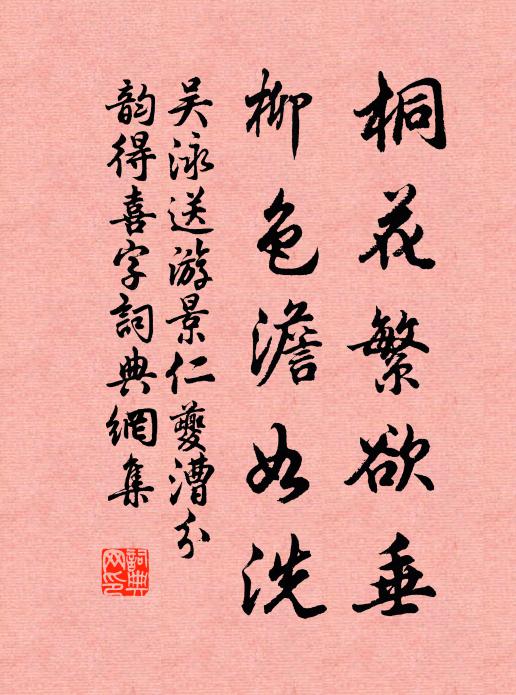 桐花繁欲垂
柳色澹如洗
吴泳送游景仁夔漕分
韵得喜字詞典網集
詞典網印